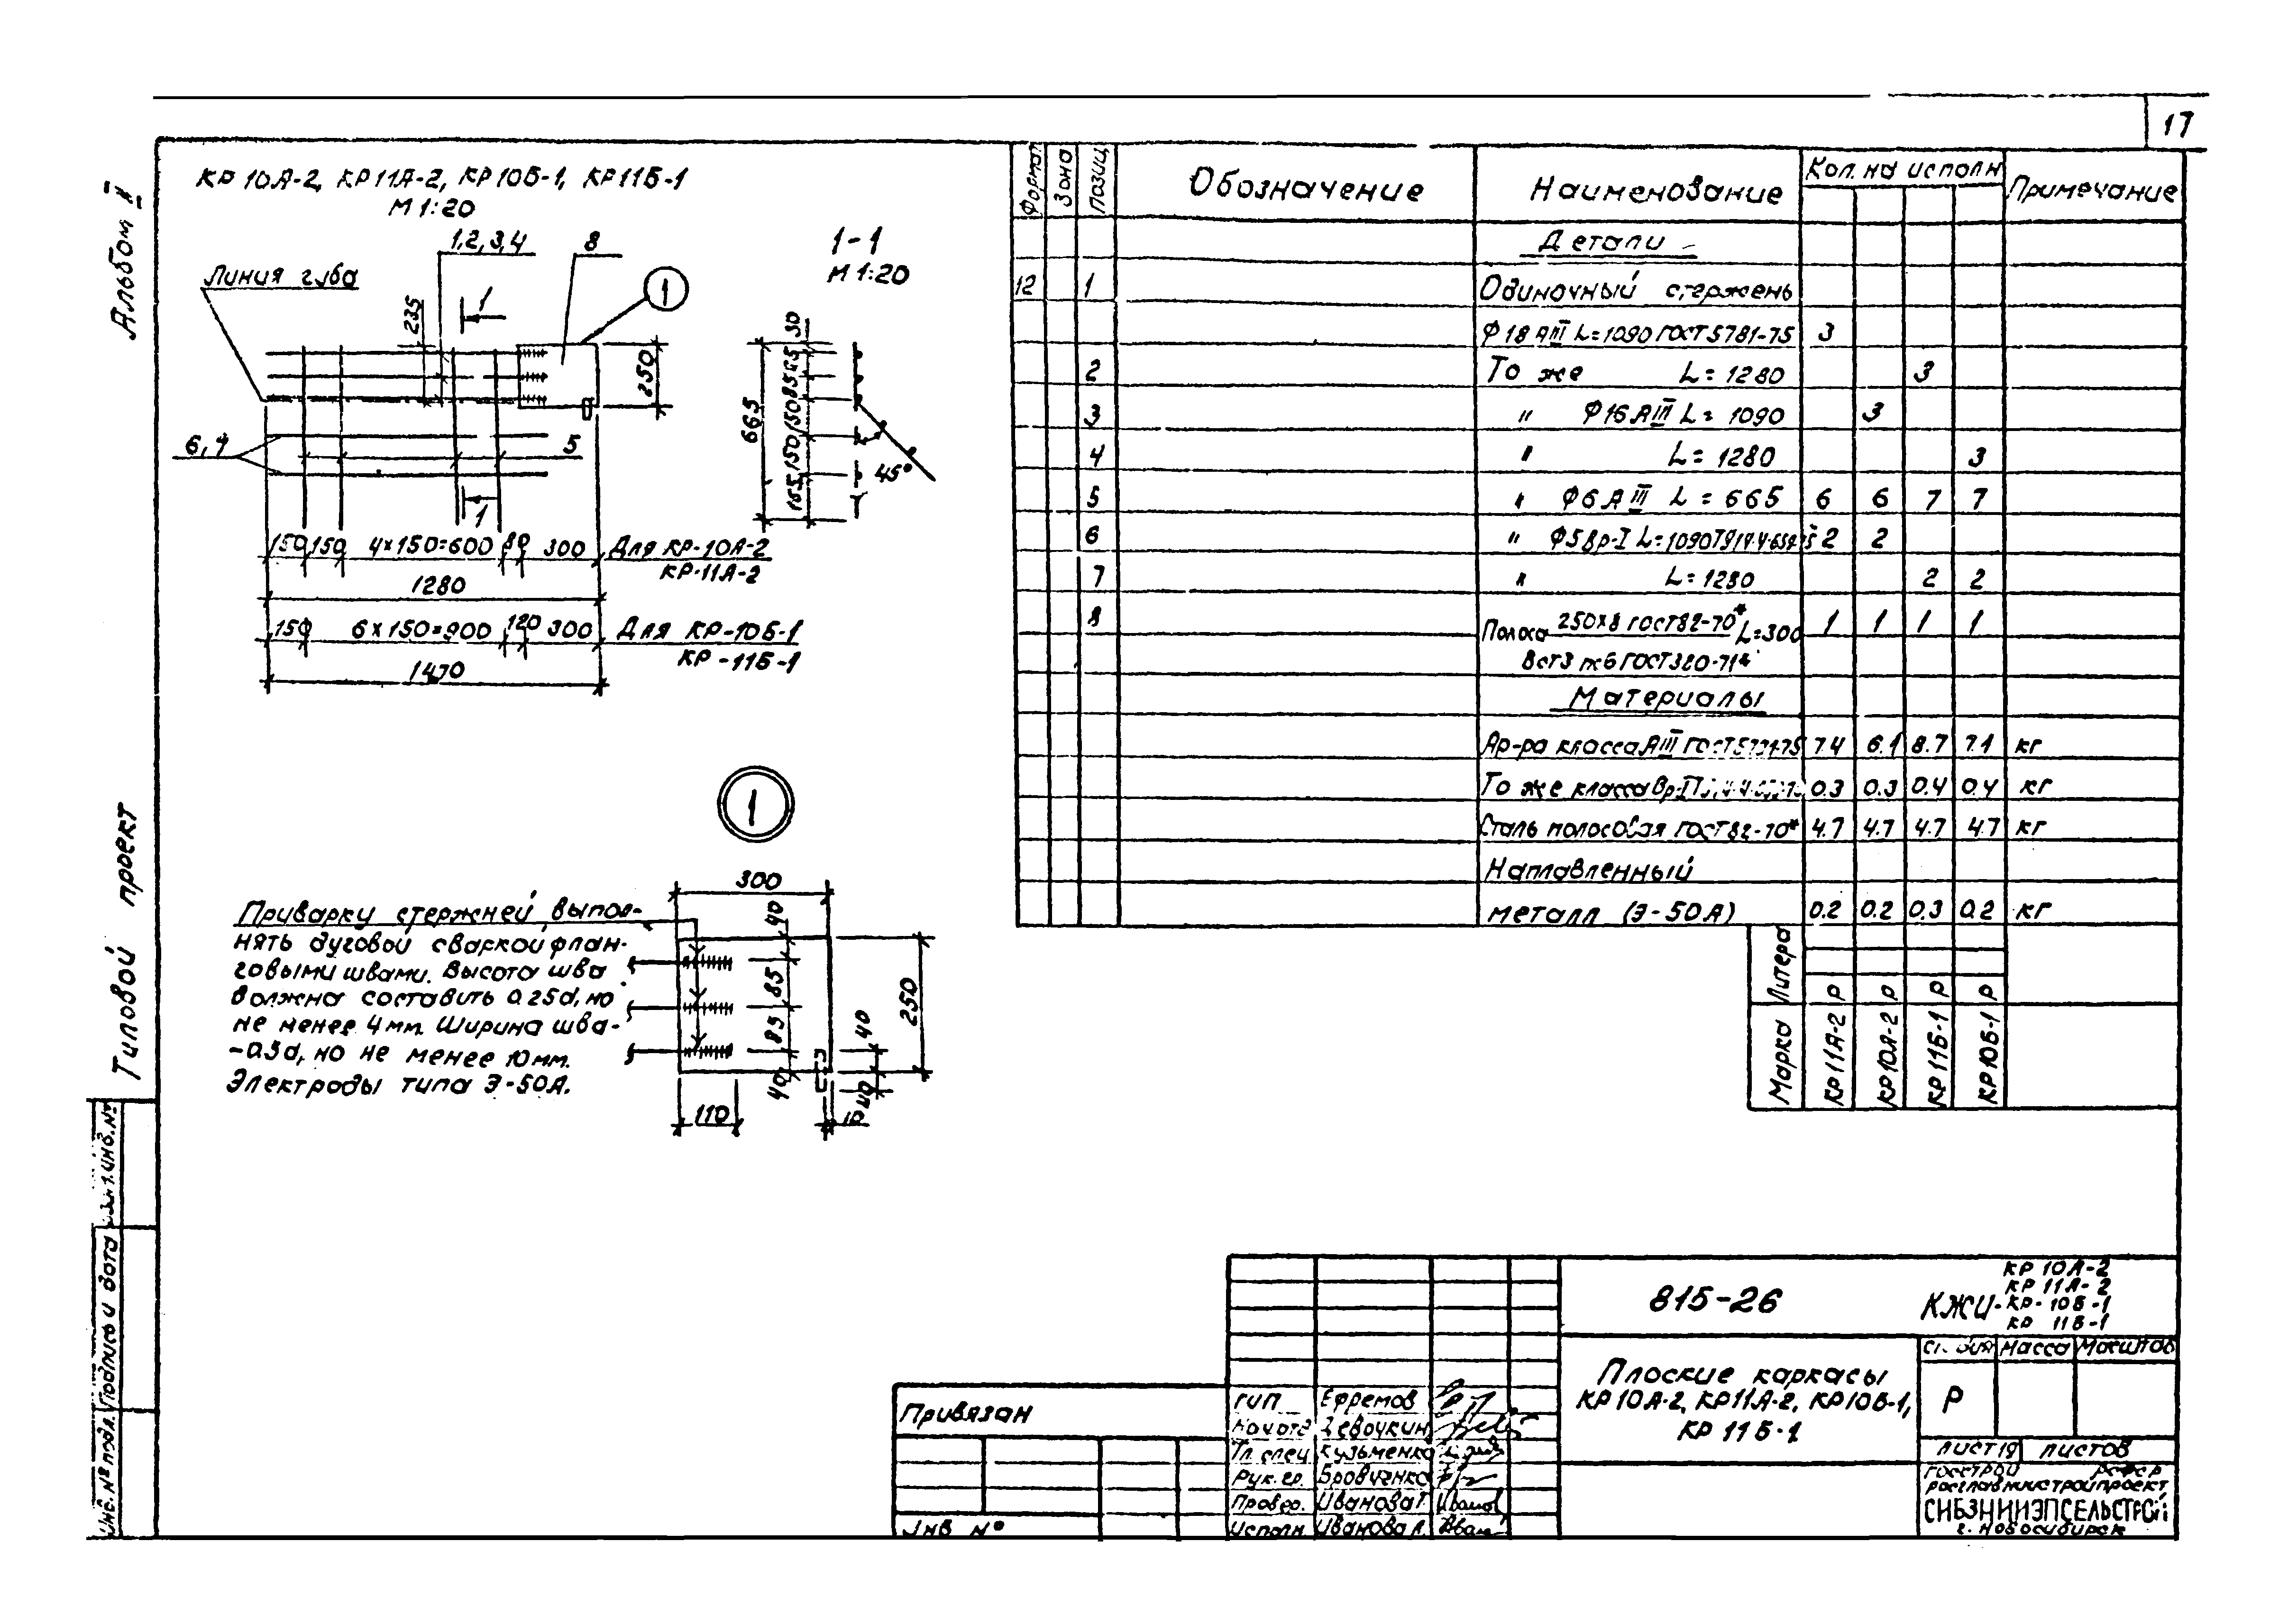 17
Альбом II
Типовой проект
КР 10А-2, КР11А-2, КР10Б-1, КР11Б-1
М 1:20
1,2,3,4
8
Линия гиба
1
235
1
250
6,7
5
1
150 150 4×150=600 80 300 Для КР-10А-2
КР-11А-2
1280
150 6×150=900 120 300 Для КР-10Б-1
КР-11Б-1
1470
1-1
М 1:20
665
30
85
150
150
45°
1
300
Приварку стержней выпол-
нять дуговой сваркой флан-
говыми швами. Высота шва
должна составить 0.25d, но
не менее 4мм. Ширина шва-
-0.5d, но не менее 10мм.
Электроды типа Э-50А.
40
85
85
40
250
40
40
110
10
Формат Зона Позиц. Обозначение Наименование Кол. на исполн Примечание
Детали
12 1 Одиночный стержень
Ф 18 АIII L=1090 ГОСТ 5781-75 3
2 То же L=1280 3
3 " Ф16АIII L=1090 3
4 " L=1280 3
5 " Ф6АIII L=665 6 6 7 7
6 " Ф5Вр-I L=1090 2 2
7 " L=1280 2 2
8 Полоса 250×8 ГОСТ82-70* L=300 1 1 1 1
ГОСТ380-71*
Материалы
Ар-ра класса АIII 7.4 6.1 8.7 7.1 кг
То же класса Вр-I 0.3 0.3 0.4 0.4 кг
Сталь полосовая ГОСТ82-70* 4.7 4.7 4.7 4.7 кг
Наплавленный
металл (Э-50А) 0.2 0.2 0.3 0.2 кг
Литера Р Р Р Р
Марка КР11А-2 КР10А-2 КР11Б-1 КР10Б-1
815-26
КЖИ-
КР 10А-2
КР 11А-2
КР-10Б-1
КР 11Б-1
Плоские каркасы
КР10А-2, КР11А-2, КР10Б-1,
КР 11Б-1
Масса
Р
Лист 19 Листов
Госстрой РСФСР
СИБЗНИИЭПСЕЛЬСТРОЙ
г. Новосибирск
Привязан
Инв №
ГИП Ефремов
Девочкин
Гл. спец Кузьменко
Рук. гр. Бровченко
Провер. Иванова Г.
Исполн. Иванова Л.
Взам. инв. №
Подпись и дата
Инв. № подл.